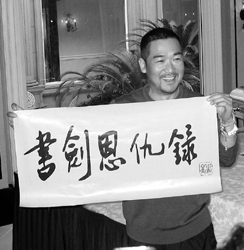 書劍恩仇錄